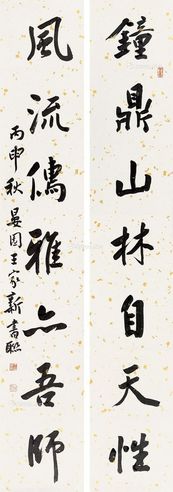 鐘鼎山林自天性
風流儒雅亦吾師
丙申秋王家新書聯